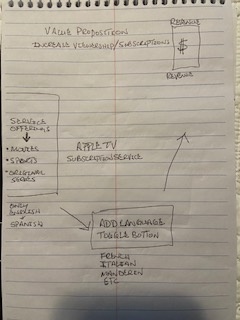 VALUE PROPOSITION
INCREASE VIEWERSHIP/SUBSCRIPTIONS
REVENUE
$
REVENUE
SERVICE
OFFERINGS
• MOVIES
• SPORTS
• ORIGINAL
SERIES
APPLE TV
SUBSCRIPTION SERVICE
ONLY
ENGLISH
SPANISH
ADD LANGUAGE
TOGGLE BUTTON
FRENCH
ITALIAN
MANDEREN
ETC